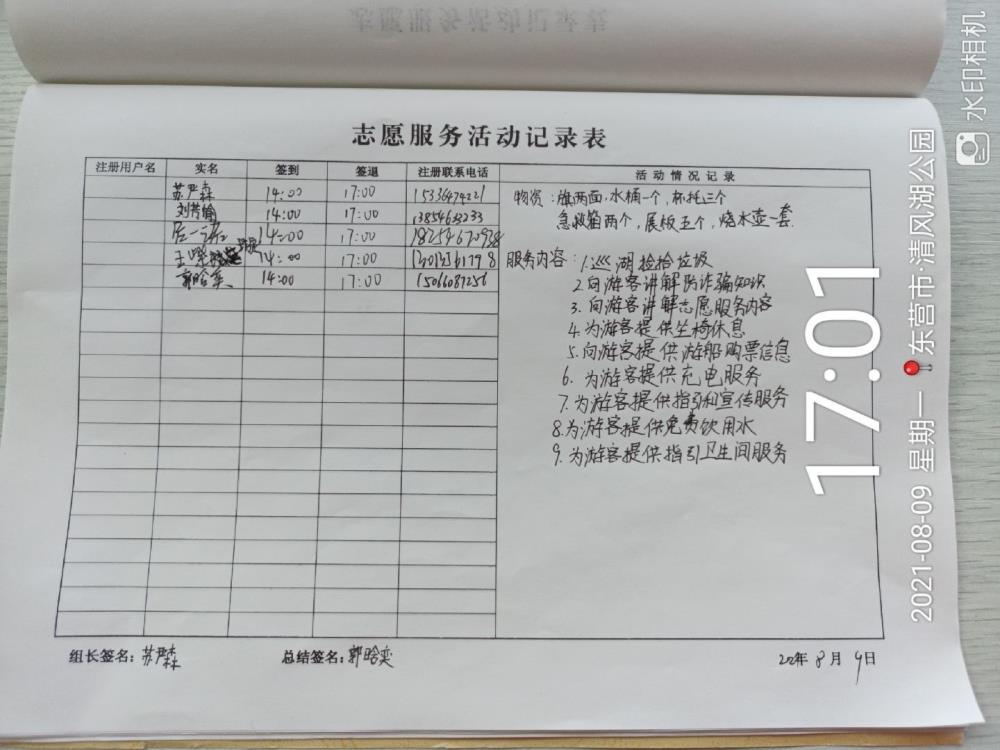 志愿服务活动记录表
注册用户名 实名 签到 签退 注册联系电话 活动情况记录
苏严森 14:00 17:00 15336474221
刘芳 14:00 17:00 13854633233
14:00 17:00 18254670938
王 14:00 17:00
郭晗奕 14:00 17:00 15066087256
物资：旗两面，水桶一个，杯托三个
急救箱两个，展板五个，烧水壶一套.
服务内容：1.巡湖捡拾垃圾
2.向游客讲解防诈骗知识
3.向游客讲解志愿服务内容
4.为游客提供坐椅休息
5.向游客提供游船购票信息
6.为游客提供充电服务
7.为游客提供指引和宣传服务
8.为游客提供免费饮用水
9.为游客提供指引卫生间服务
组长签名：苏严森 总结签名：郭晗奕 8月9日
17:01
2021-08-09 星期一 东营市·清风湖公园
水印相机